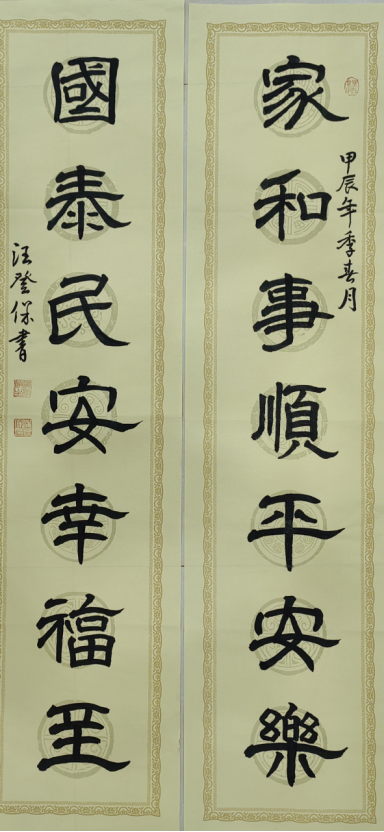 家和事順平安樂
甲辰年季春月
國泰民安幸福至
汪登保書